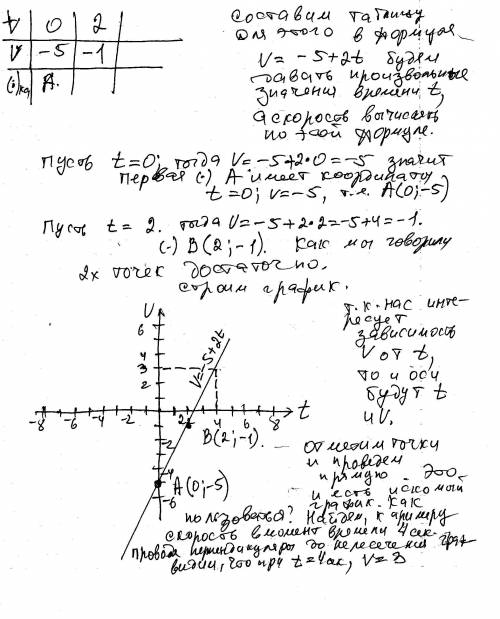 t 0 2
V -5 -1
(·)ка A.
Составим таблицу
Для этого в формуле
V = -5+2t будем
давать произвольные
значения времени t,
а скорость вычислять
по этой формуле.
Пусть t=0; тогда V=-5+2·0=-5 значит
первая (·) A имеет координаты
t=0; v=-5, т.е. A(0;-5)
Пусть t = 2. тогда V=-5+2·2=-5+4=-1.
(·) B(2;-1). Как мы говорили
2х точек достаточно.
строим график.
т.к. нас инте-
ресует
зависимость
V от t,
то и оси
будут t
и V.
V
6
4
3
2
V=-5+2t
-8 -6 -4 -2 2 4 6 8 t
B(2;-1).
-2
-4
A(0;-5)
-6
Отметим точки
и проведем
прямую. Это
и есть искомый
график. Как
пользоваться? Найдем, к примеру
скорость в момент времени 4 сек.
проводя перпендикуляры до пересечения граф
видим, что при t=4ск, V=3